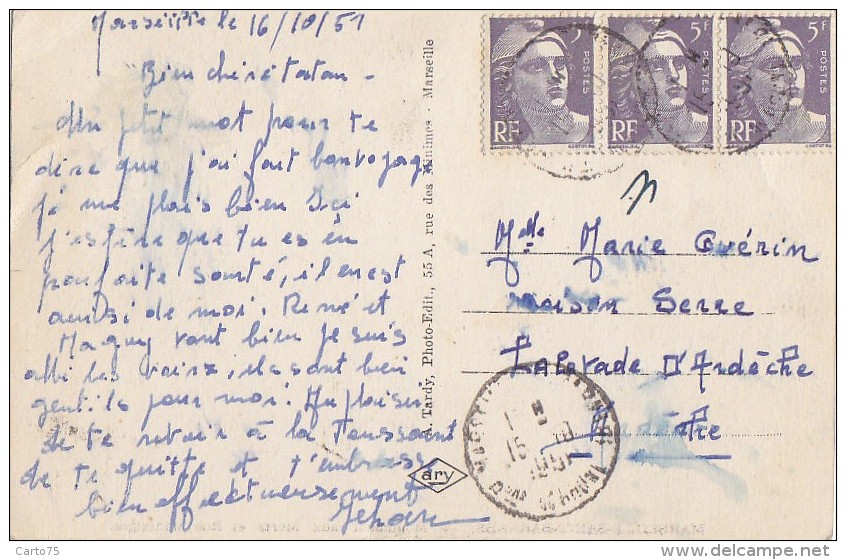 Marseille le 16/10/51
Bien chère tatan -
Un petit mot pour te
dire que j'ai fait bon voyage
je me plais bien Ici
j'espère que tu es en
parfaite santé, il en est
ainsi de moi. René et
Maguy vont bien je suis
allé les voirs, ils sont bien
gentils pour moi. Au plaisir
de te revoir à la Toussaint
je te quitte et t'embrasse
bien affectueusement
A. Tardy, Photo-Edit., 55 A, rue des Minimes - Marseille
ary
5f
POSTES
RF
5f
POSTES
RF
5f
POSTES
RF
Mlle Marie Guérin
maison Serre
Lalevade D'Ardèche
Ardèche
Carto75
delcampe.net